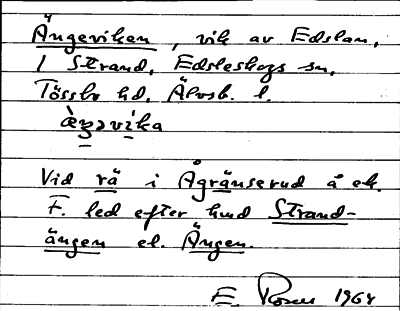 Ängeviken, vik av Edslan,
i Strand, Edsleskogs sn,
Tössbo hd, Älvsb. l.
æ̀ŋəvika
Vid rä i Ågränserud å ek.
F. led efter hmd Strand-
ängen el. Ängen.
E. Rosen 1964